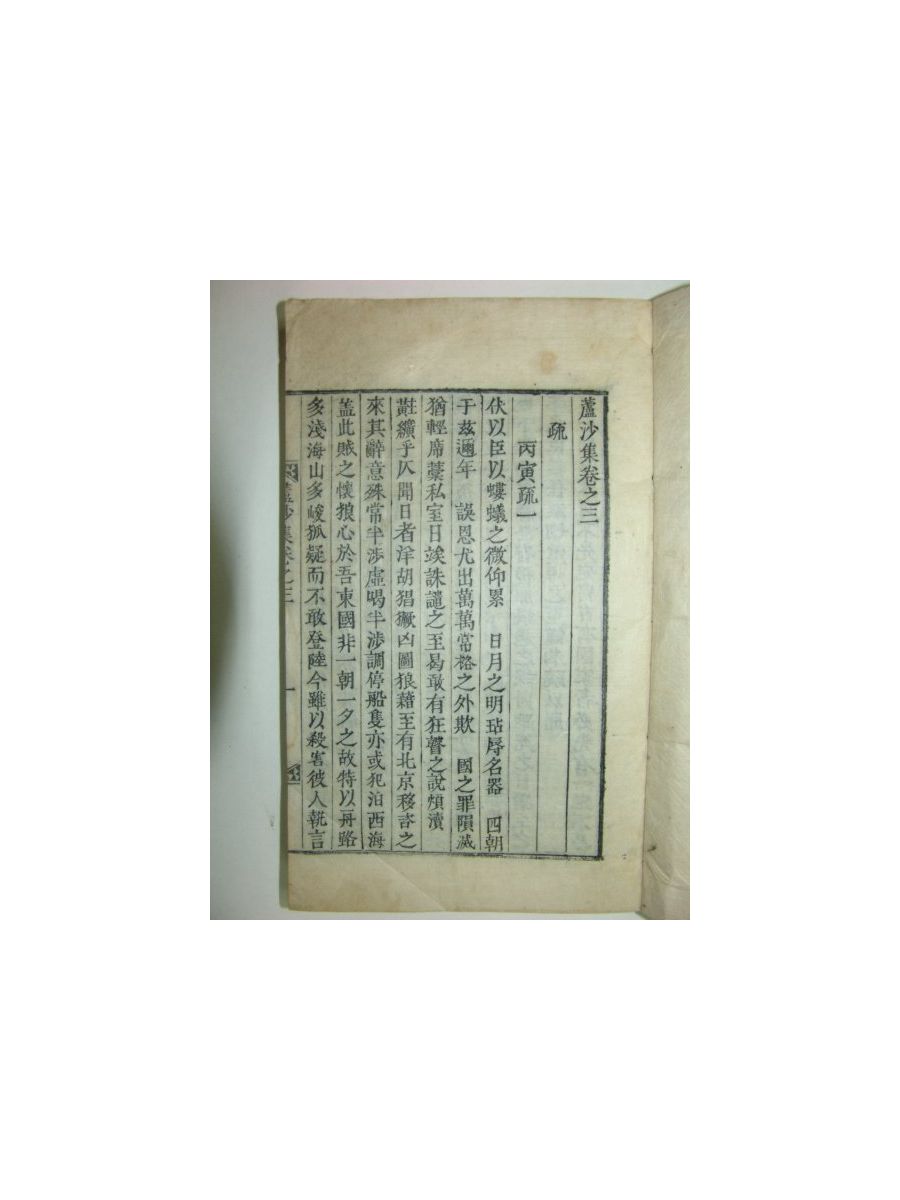 蘆沙集卷之三
疏
丙寅疏一
伏以臣以螻蟻之微仰累 日月之明玷辱名器 四朝
于茲邇年 誤恩尤出萬萬常格之外欺 國之罪隕滅
猶輕席藁私室日竢誅譴之至曷敢有狂瞽之說煩瀆
黈纊乎仄聞日者洋胡猖獗凶圖狼藉至有北京移咨之
來其辭意殊常半涉虛喝半涉調停船隻亦或犯泊西海
盖此賊之懷狼心於吾東國非一朝一夕之故特以舟路
多淺海山多峻狐疑而不敢登陸今雖以殺害彼人執言
蘆沙集卷之三 一